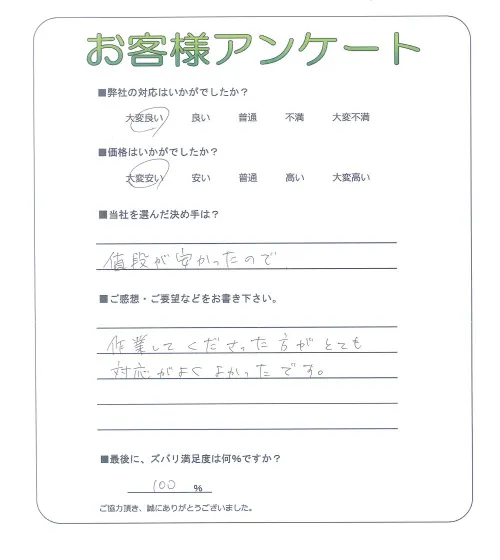 お客様アンケート
■弊社の対応はいかがでしたか？
大変良い 良い 普通 不満 大変不満
■価格はいかがでしたか？
大変安い 安い 普通 高い 大変高い
■当社を選んだ決め手は？
値段が安かったので
■ご感想・ご要望などをお書き下さい。
作業してくださった方がとても
対応がよくよかったです。
■最後に、ズバリ満足度は何%ですか？
100 %
ご協力頂き、誠にありがとうございました。